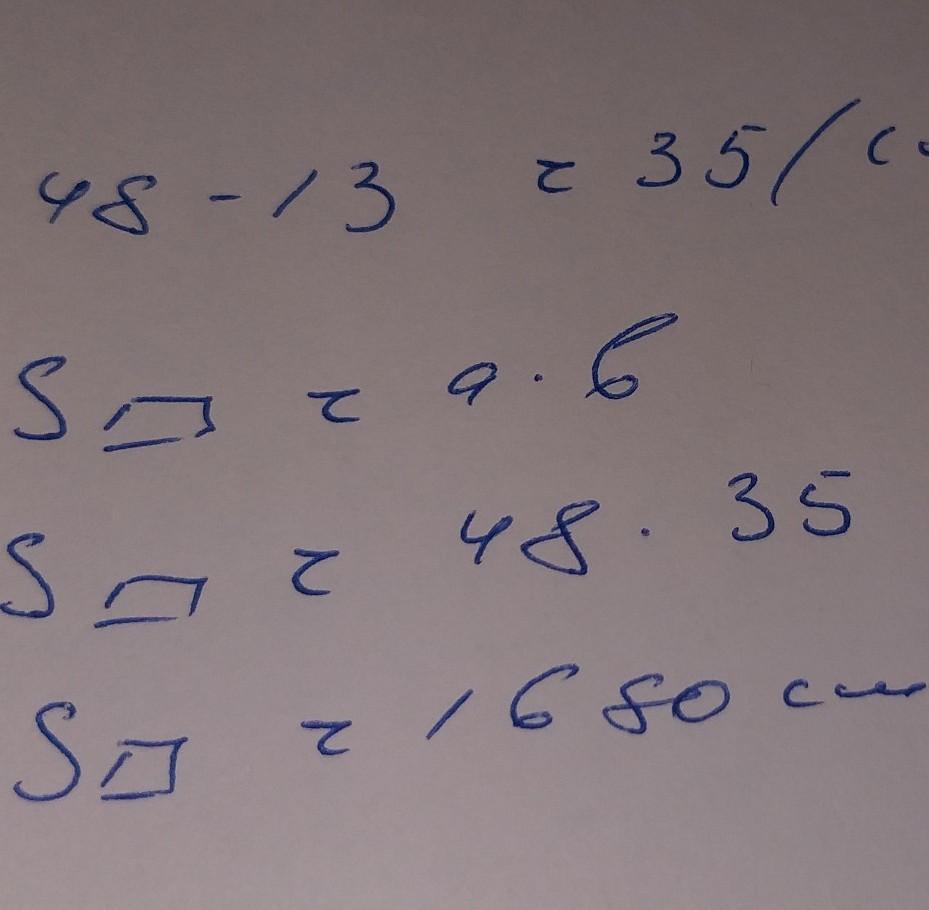 48 - 13 = 35 (с
S▱ = a · b
S▱ = 48 · 35
S▱ = 1680 см